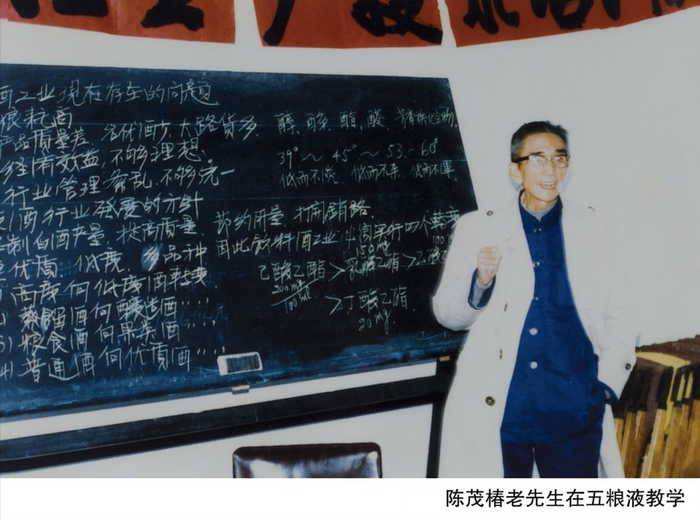 酒工业现在存在的问题
粮耗高
产品质量差 名优酒少,大路货多
经济有效益,不够理想
行业管理紊乱,不够统一
酒行业发展的方针
控制白酒产量,提高质量
优质、低度、多品种
高度向低度酒转变
蒸馏酒向酿造酒〃〃
粮食酒向果类酒〃〃
普通酒向优质酒〃〃
醇、酸、酯、醛、
39°~45°~53~60°
低而不淡、低而不杂、低而不浑
节约用量,打开销路
因此饮料酒工业必须实行四个转变
己酸乙酯 > 乳酸乙酯 >
200mg/100ml
150mg
> 丁酸乙酯
20mg
陈茂椿老先生在五粮液教学